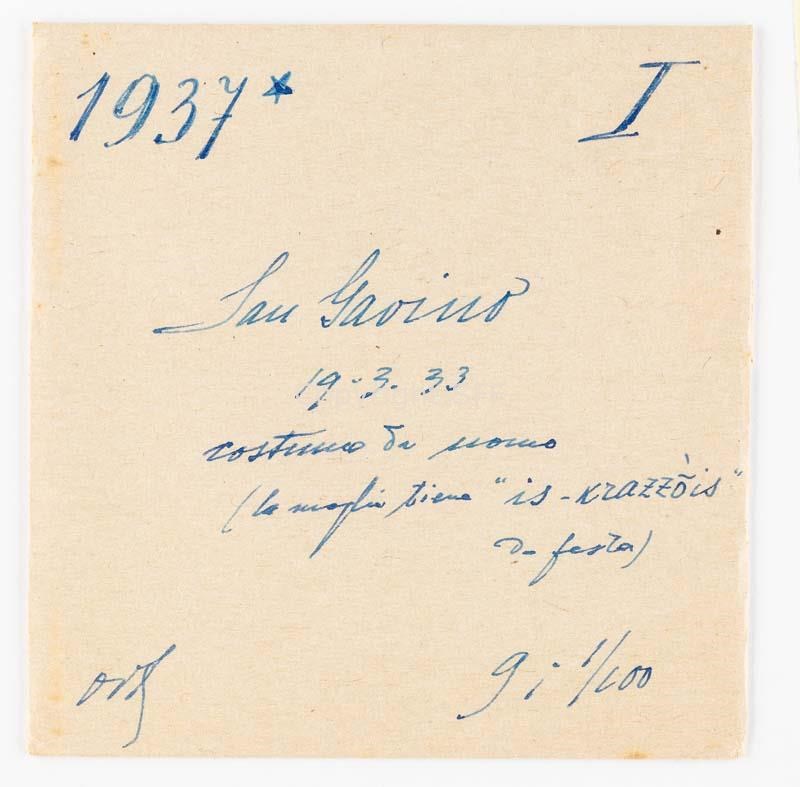 1937* I
San Gavino
19.3.33
costume da uomo
(la moglie tiene "is-krazzõ̀is"
da festa)
9; 1/100